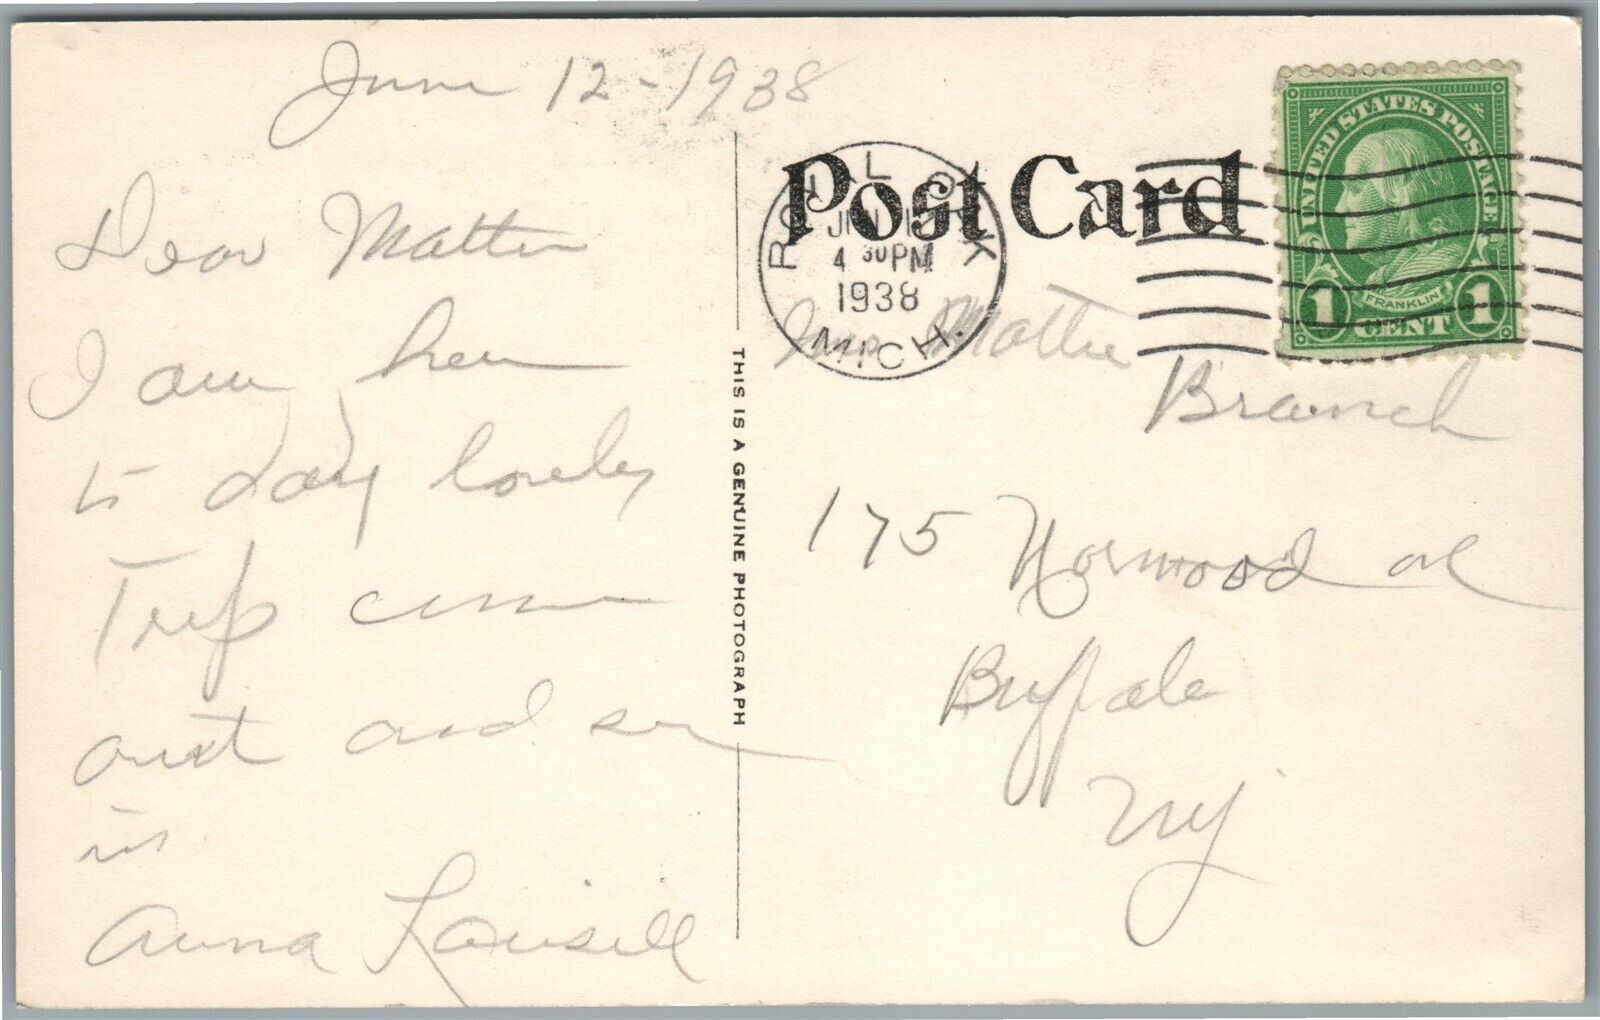 June 12-1938
Dear Mattie
I am here
to day lovely
Trip come
out and see
us
Anna
THIS IS A GENUINE PHOTOGRAPH
Post Card
ROYAL OAK
JUN
4 30 PM
1938
MICH.
UNITED STATES POSTAGE
FRANKLIN
1 CENT 1
Mrs Mattie
Branch
175 Norwood av
Buffalo
NY